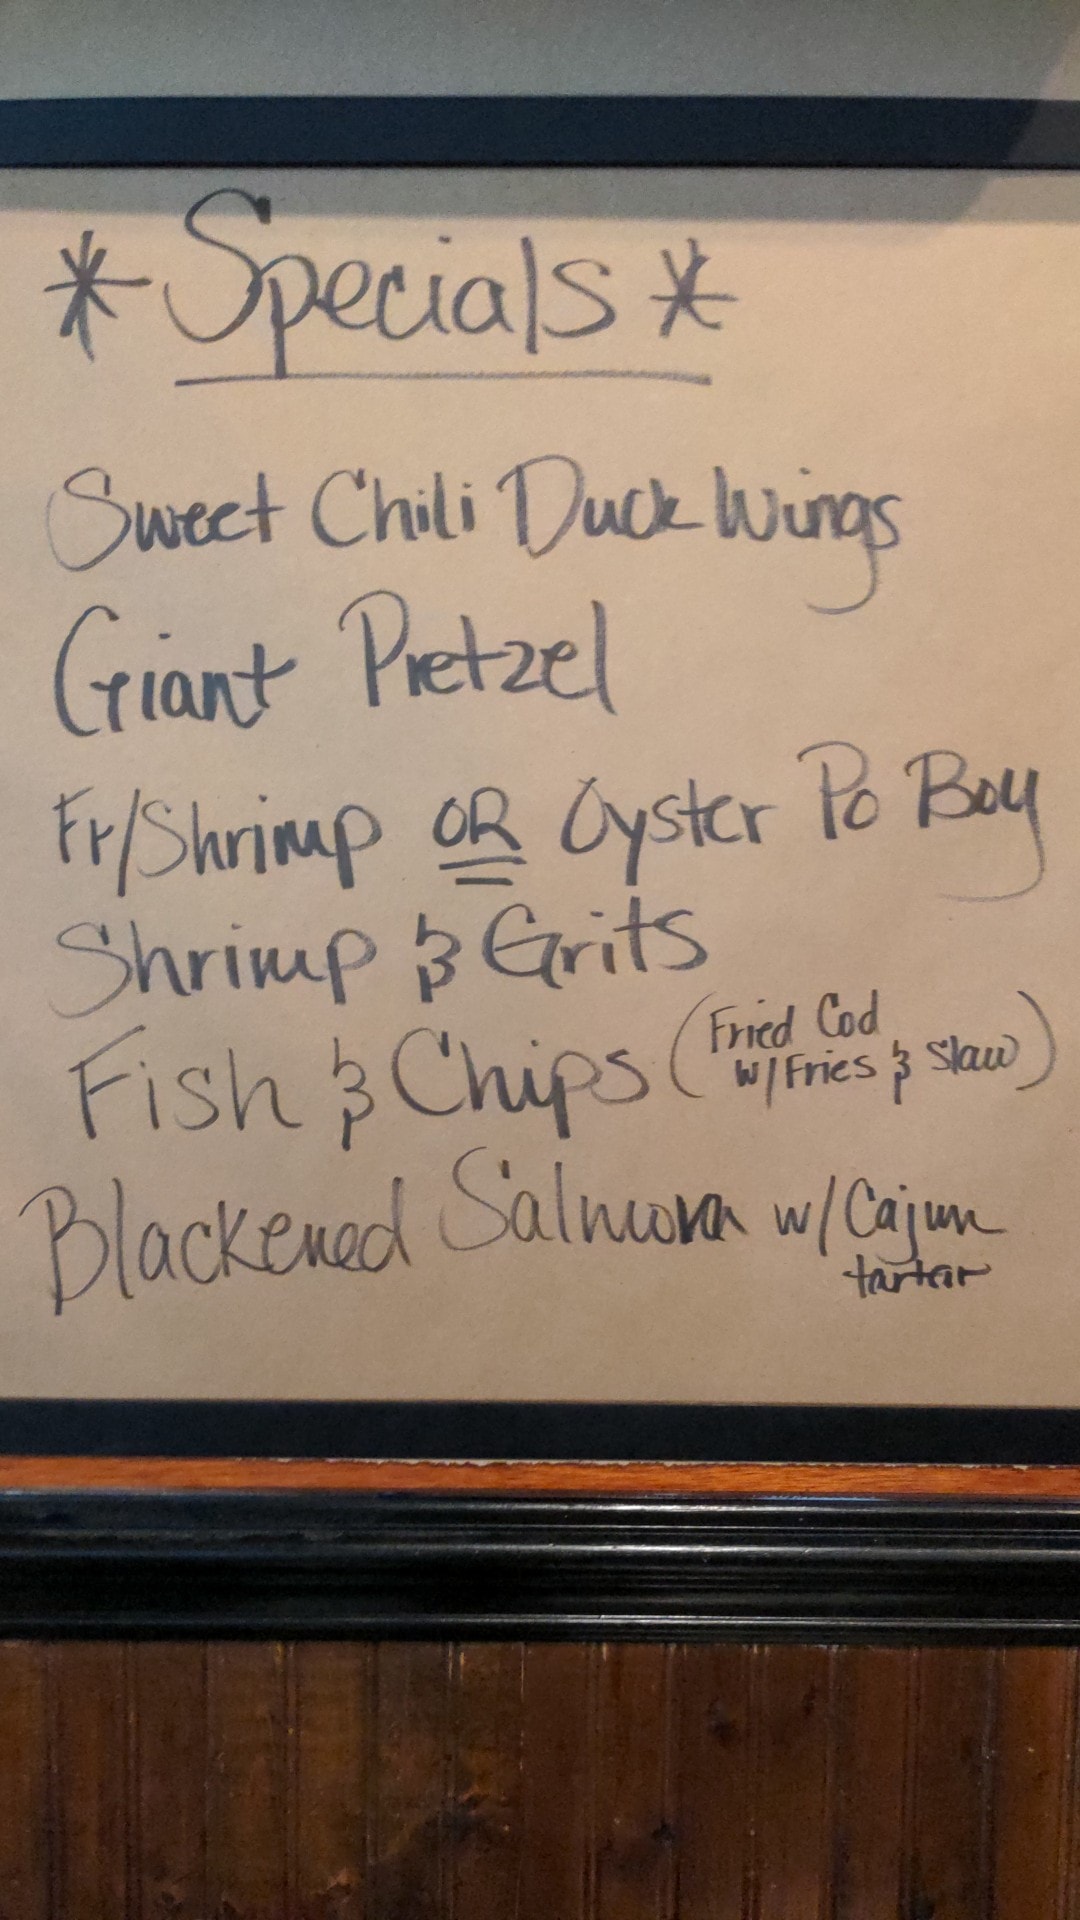 * Specials *
Sweet Chili Duck Wings
Giant Pretzel
Fr/Shrimp OR Oyster Po Boy
Shrimp & Grits
Fish & Chips (Fried Cod
w/Fries & Slaw)
Blackened Salmon w/Cajun
tartar